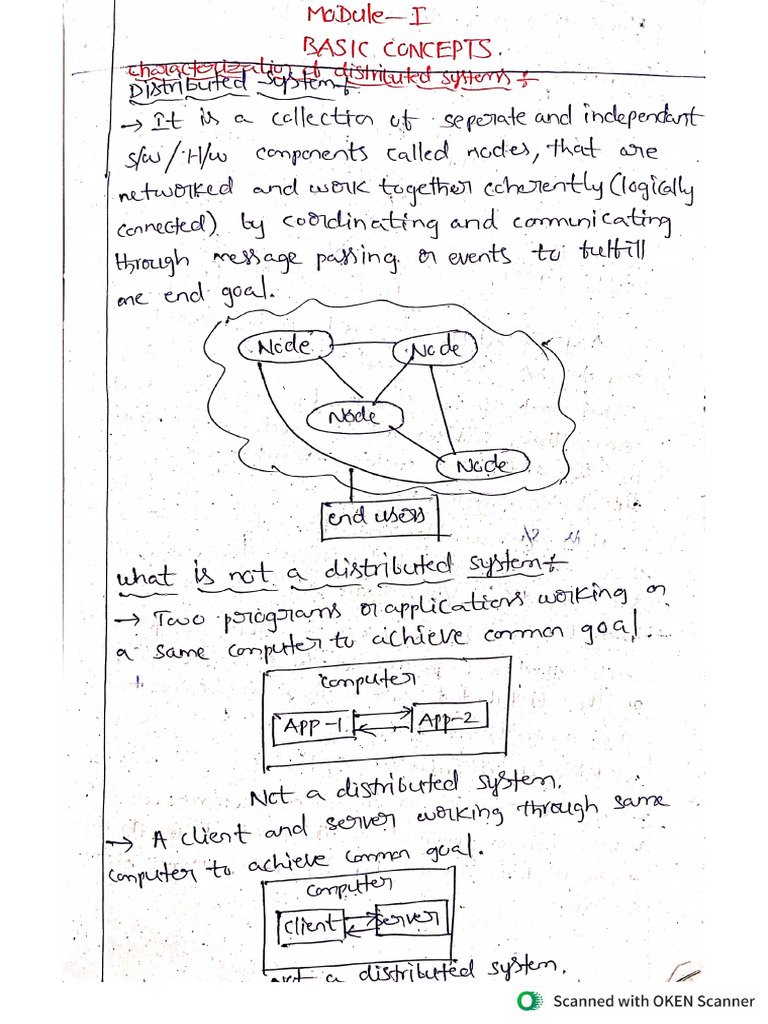 Module-I
BASIC CONCEPTS.
characterization of distributed systems:-
Distributed system:-
→ It is a collection of seperate and independant
s/w / H/w components called nodes, that are
networked and work together coherently (logically
connected) by coordinating and communicating
through message passing or events to fulfill
one end goal.
Node
Node
Node
Node
end users
what is not a distributed system:-
→ Two programs or applications working on
a same computer to achieve common goal.
computer
App-1
App-2
Not a distributed system.
→ A client and server working through same
computer to achieve common goal.
computer
client
server
Not a distributed system.
Scanned with OKEN Scanner